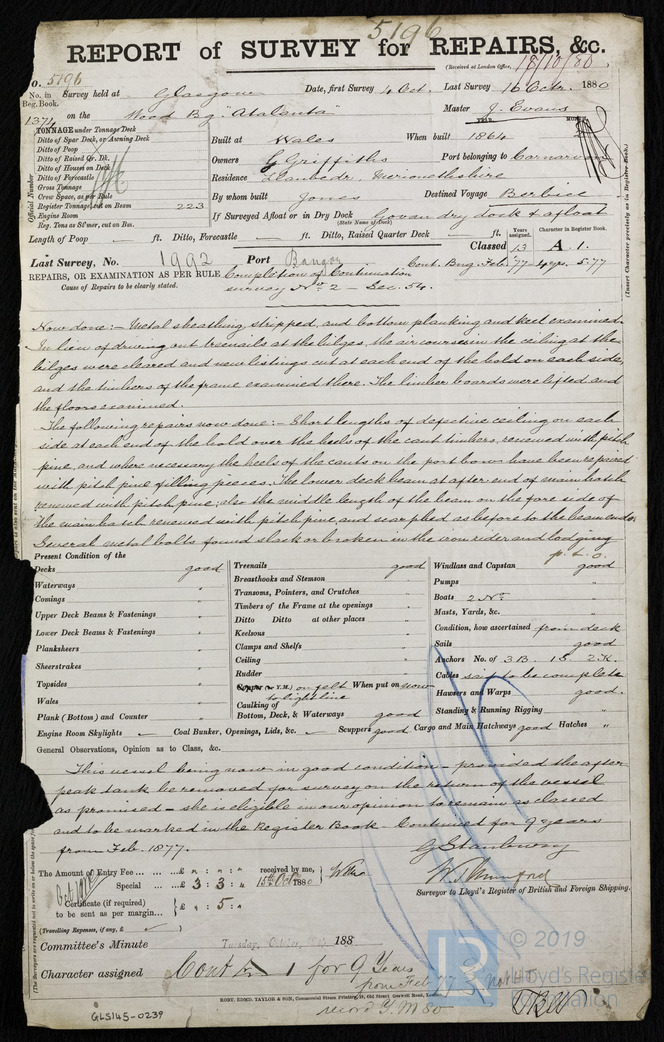 5196
REPORT of SURVEY for REPAIRS, &c.
(Received at London Office, 18/10/80
No. 5196
No. in Reg. Book.
1374
Survey held at Glasgow Date, first Survey 4 Oct. Last Survey 16 Octr. 1880
on the Wood Bg. "Atalanta" Master J. Evans
TONNAGE under Tonnage Deck
Ditto of Spar Deck, or Awning Deck
Ditto of Poop
Ditto of Raised Qr. Dk.
Ditto of House on Deck
Ditto of Forecastle
Gross Tonnage
Crew Space, as per Rule
Register Tonnage cut on Beam 223
Engine Room
Reg. Tons as St'mer, cut on Bm.
Official Number
Built at Wales When built 1864
Owners G Griffiths Port belonging to Carnarvon
Residence Llanbedr, Merionethshire
By whom built Jones Destined Voyage Berbice
If Surveyed Afloat or in Dry Dock Govan dry dock & afloat
(State Name of Dock)
Length of Poop ft. Ditto, Forecastle ft. Ditto, Raised Quarter Deck ft.
Years assigned. Character in Register Book.
Classed 13 A.1.
Last Survey, No. 1992 Port Bangor Cont. Bng. Feb. 77 - 4 yrs. 5.77
REPAIRS, OR EXAMINATION AS PER RULE Completion of Continuation
Cause of Repairs to be clearly stated. survey No. 2 - Sec. 54.
(Insert Character precisely as in Register Book.)
Now done:- Metal sheathing, stripped, and bottom planking and keel examined.
In lieu of driving out treenails at the bilges, the air courses in the ceiling at the
bilges were cleared and new listings cut at each end of the hold on each side,
and the timbers of the frame examined there. The limber boards were lifted and
the floors examined.
The following repairs now done:- Short lengths of defective ceiling on each
side at each end of the hold over the heels of the cant timbers, renewed with pitch
pine, and where necessary the heels of the cants on the port bow have been repaired
with pitch pine filling pieces. The lower deck beam at after end of main hatch
renewed with pitch pine, also the middle length of the beam on the fore side of
the main hatch renewed with pitch pine and scarphed as before to the beam ends.
Several metal bolts found slack or broken in the iron rider and lodging
p.t.o.
Present Condition of the
Decks good
Waterways "
Comings "
Upper Deck Beams & Fastenings "
Lower Deck Beams & Fastenings "
Planksheers "
Sheerstrakes "
Topsides "
Wales "
Plank (Bottom) and Counter "
Treenails good
Breasthooks and Stemson "
Transoms, Pointers, and Crutches "
Timbers of the Frame at the openings "
Ditto Ditto at other places "
Keelsons "
Clamps and Shelfs "
Ceiling "
Rudder "
Copper (or Y.M.) on felt When put on now
to light line
Caulking of
Bottom, Deck, & Waterways good
Windlass and Capstan good
Pumps "
Boats 2 No. "
Masts, Yards, &c. "
Condition, how ascertained from deck
Sails good
Anchors No. of 3 B. 1 S. 2 K.
Cables said to be complete
Hawsers and Warps good.
Standing & Running Rigging "
Engine Room Skylights Coal Bunker, Openings, Lids, &c. Scuppers good Cargo and Main Hatchways good Hatches "
General Observations, Opinion as to Class, &c.
This vessel being now in good condition - provided the after
peak tank be removed for survey on the return of the vessel
as promised - she is eligible in our opinion to remain as classed
and to be marked in the Register Book - Continued for 9 years
from Feb. 1877.
G Stanbury
W. T. Mumford
Surveyor to Lloyd's Register of British and Foreign Shipping.
The Amount of Entry Fee ... £ " : " : " received by me,
Special ... £ 3 : 3 : " 15th Oct 1880
Certificate (if required) £ " : 5 : "
to be sent as per margin...
(Travelling Expenses, if any, £
Committee's Minute Tuesday, October 188
Character assigned Cont A 1 for 9 Years
from Feb 77
record Y.M 80
ROBT. EDMD. TAYLOR & SON, Commercial Steam Printing, 19, Old Street Goswell Road, London
GLS145-0239
© 2019
Lloyd's Register
Foundation